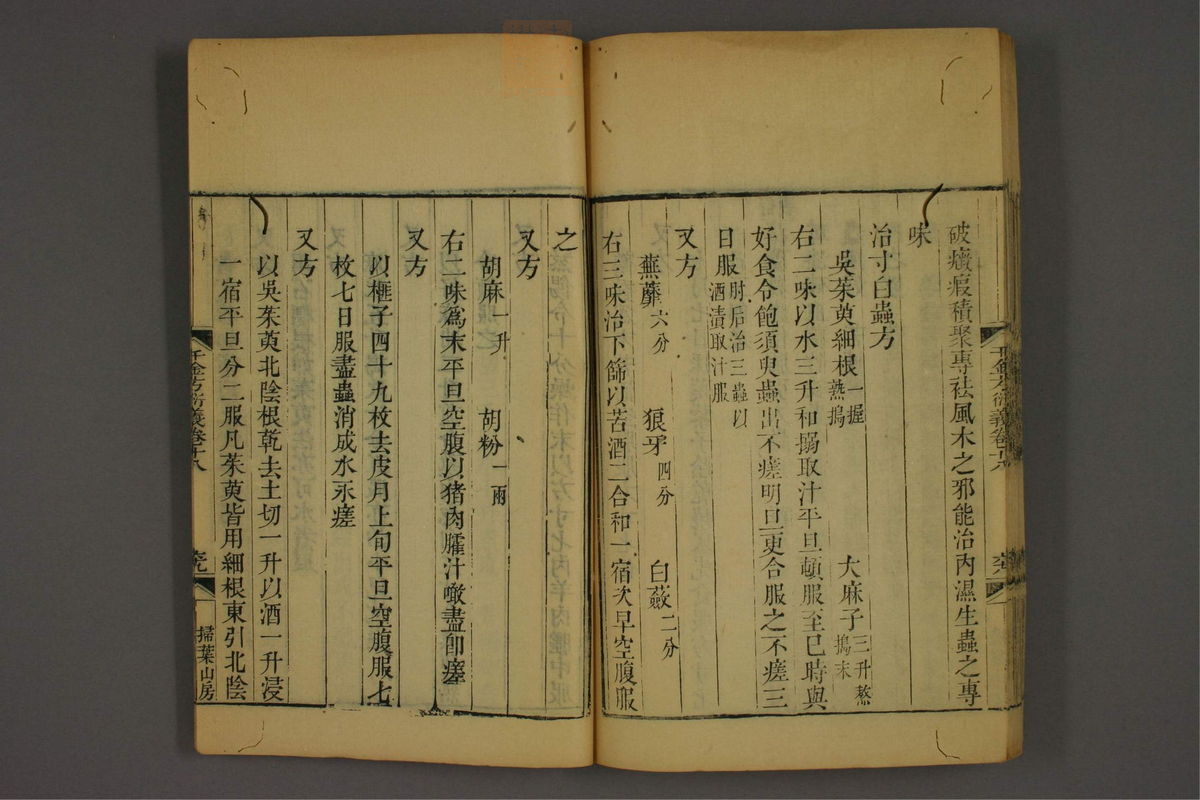 破癥瘕積聚專祛風木之邪能治內濕生蟲之專
味
治寸白蟲方
吳茱萸細根一握熟搗 大麻子三升熬搗末
右二味以水三升和搦取汁平旦頓服至巳時與
好食令飽須臾蟲出不瘥明旦更合服之不瘥三
日服肘后治三蟲以酒漬取汁服
又方
蕪蘼六分 狼牙四分 白蘞二分
右三味治下篩以苦酒二合和一宿次早空腹服
之
又方
胡麻一升 胡粉一兩
右二味為末平旦空腹以猪肉臛汁噉盡卽瘥
又方
以榧子四十九枚去皮月上旬平旦空腹服七
枚七日服盡蟲消成水永瘥
又方
以吳茱萸北陰根乾去土切一升以酒一升浸
一宿平旦分二服凡茱萸皆用細根東引北陰
千金方衍義卷十八
掃葉山房